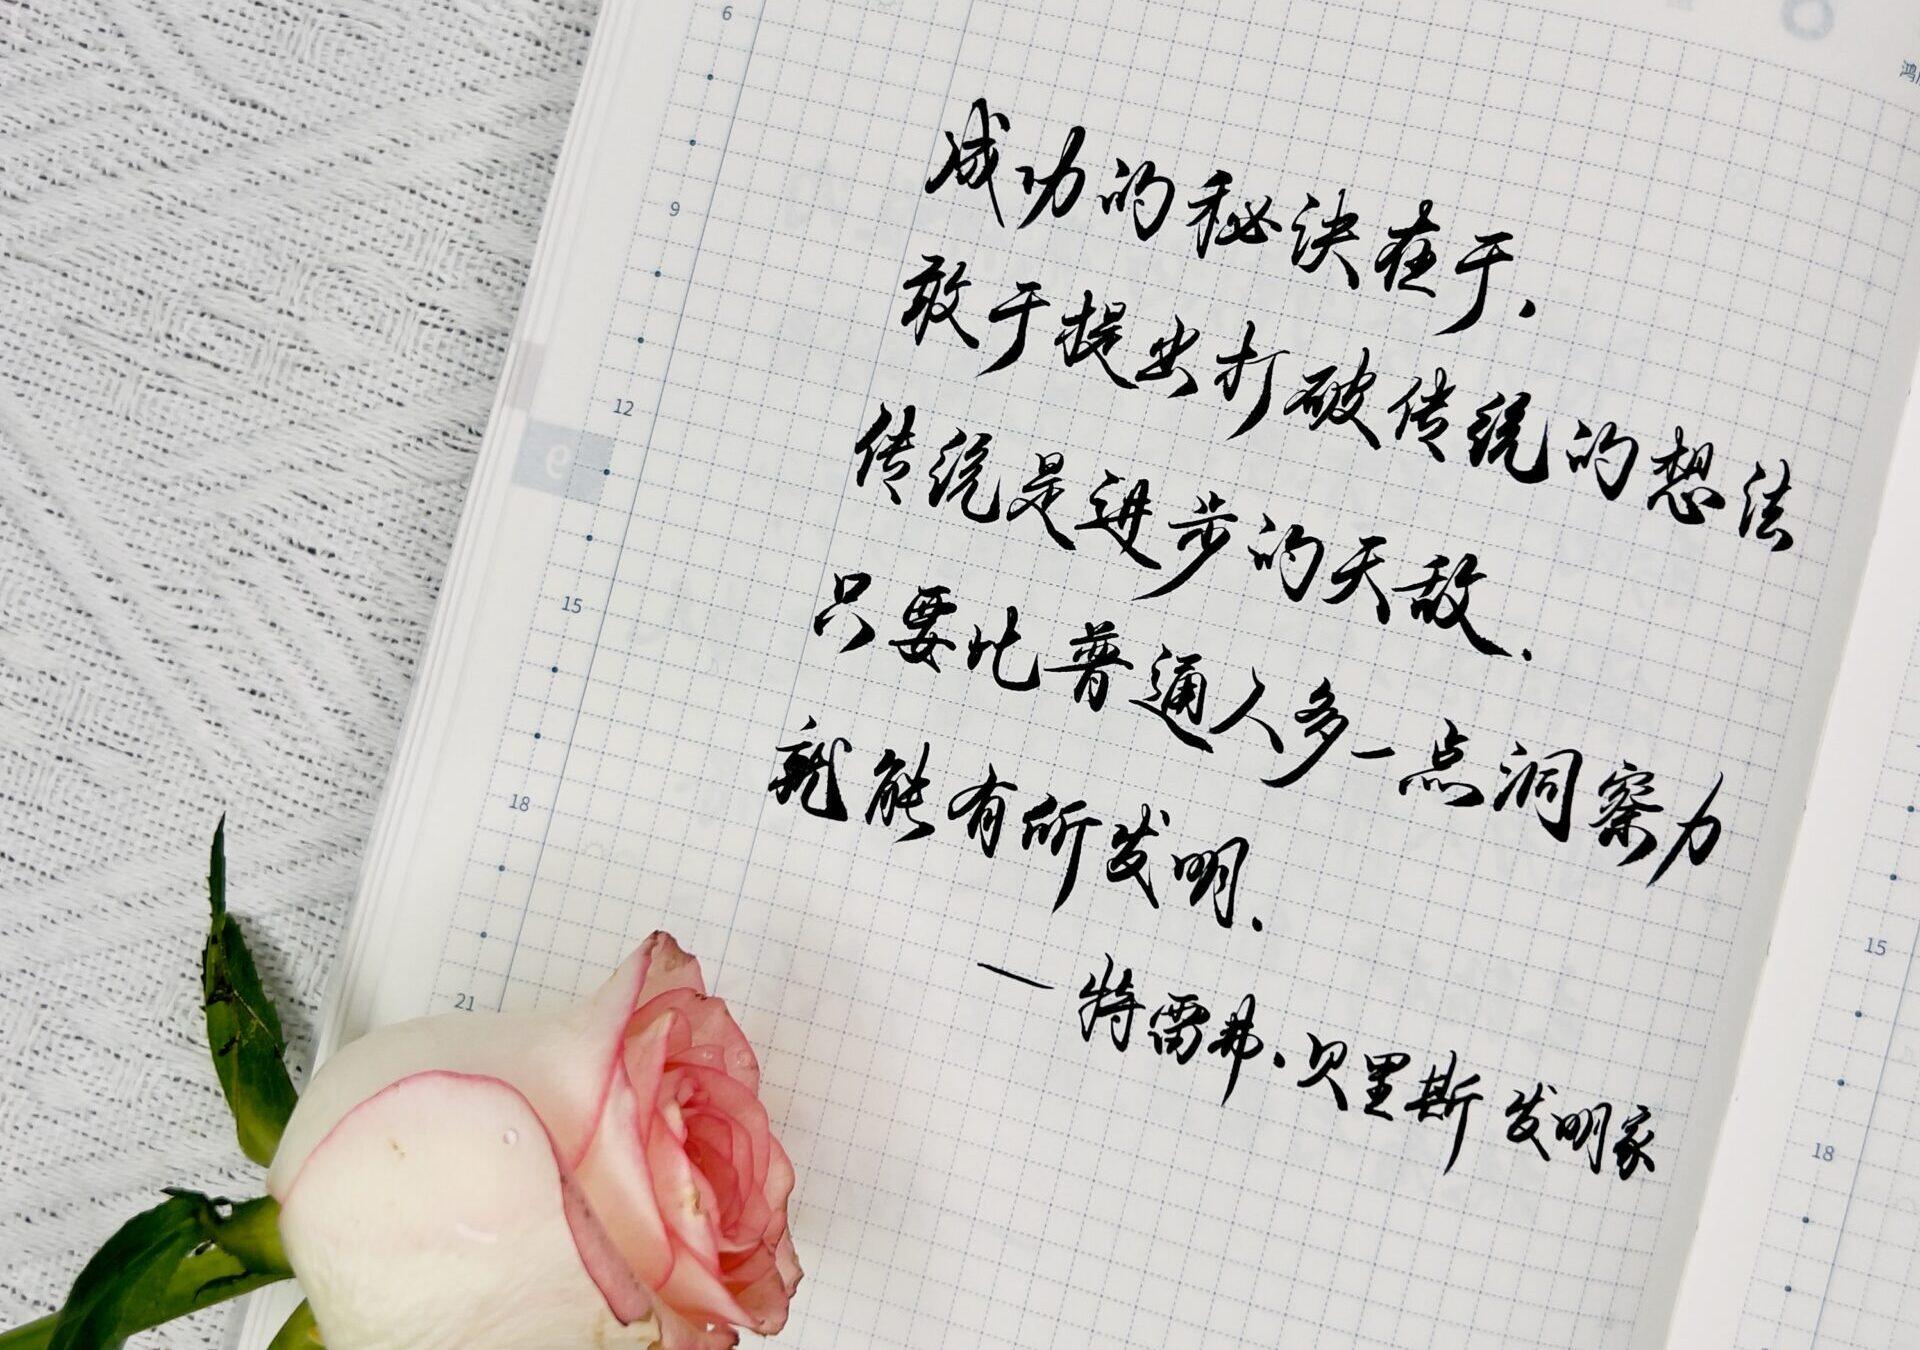 6
9
12
15
18
21
8
鸿
成功的秘诀在于.
敢于提出打破传统的想法
传统是进步的天敌.
只要比普通人多一点洞察力
就能有所发明.
一特雷弗.贝里斯 发明家
9
15
18